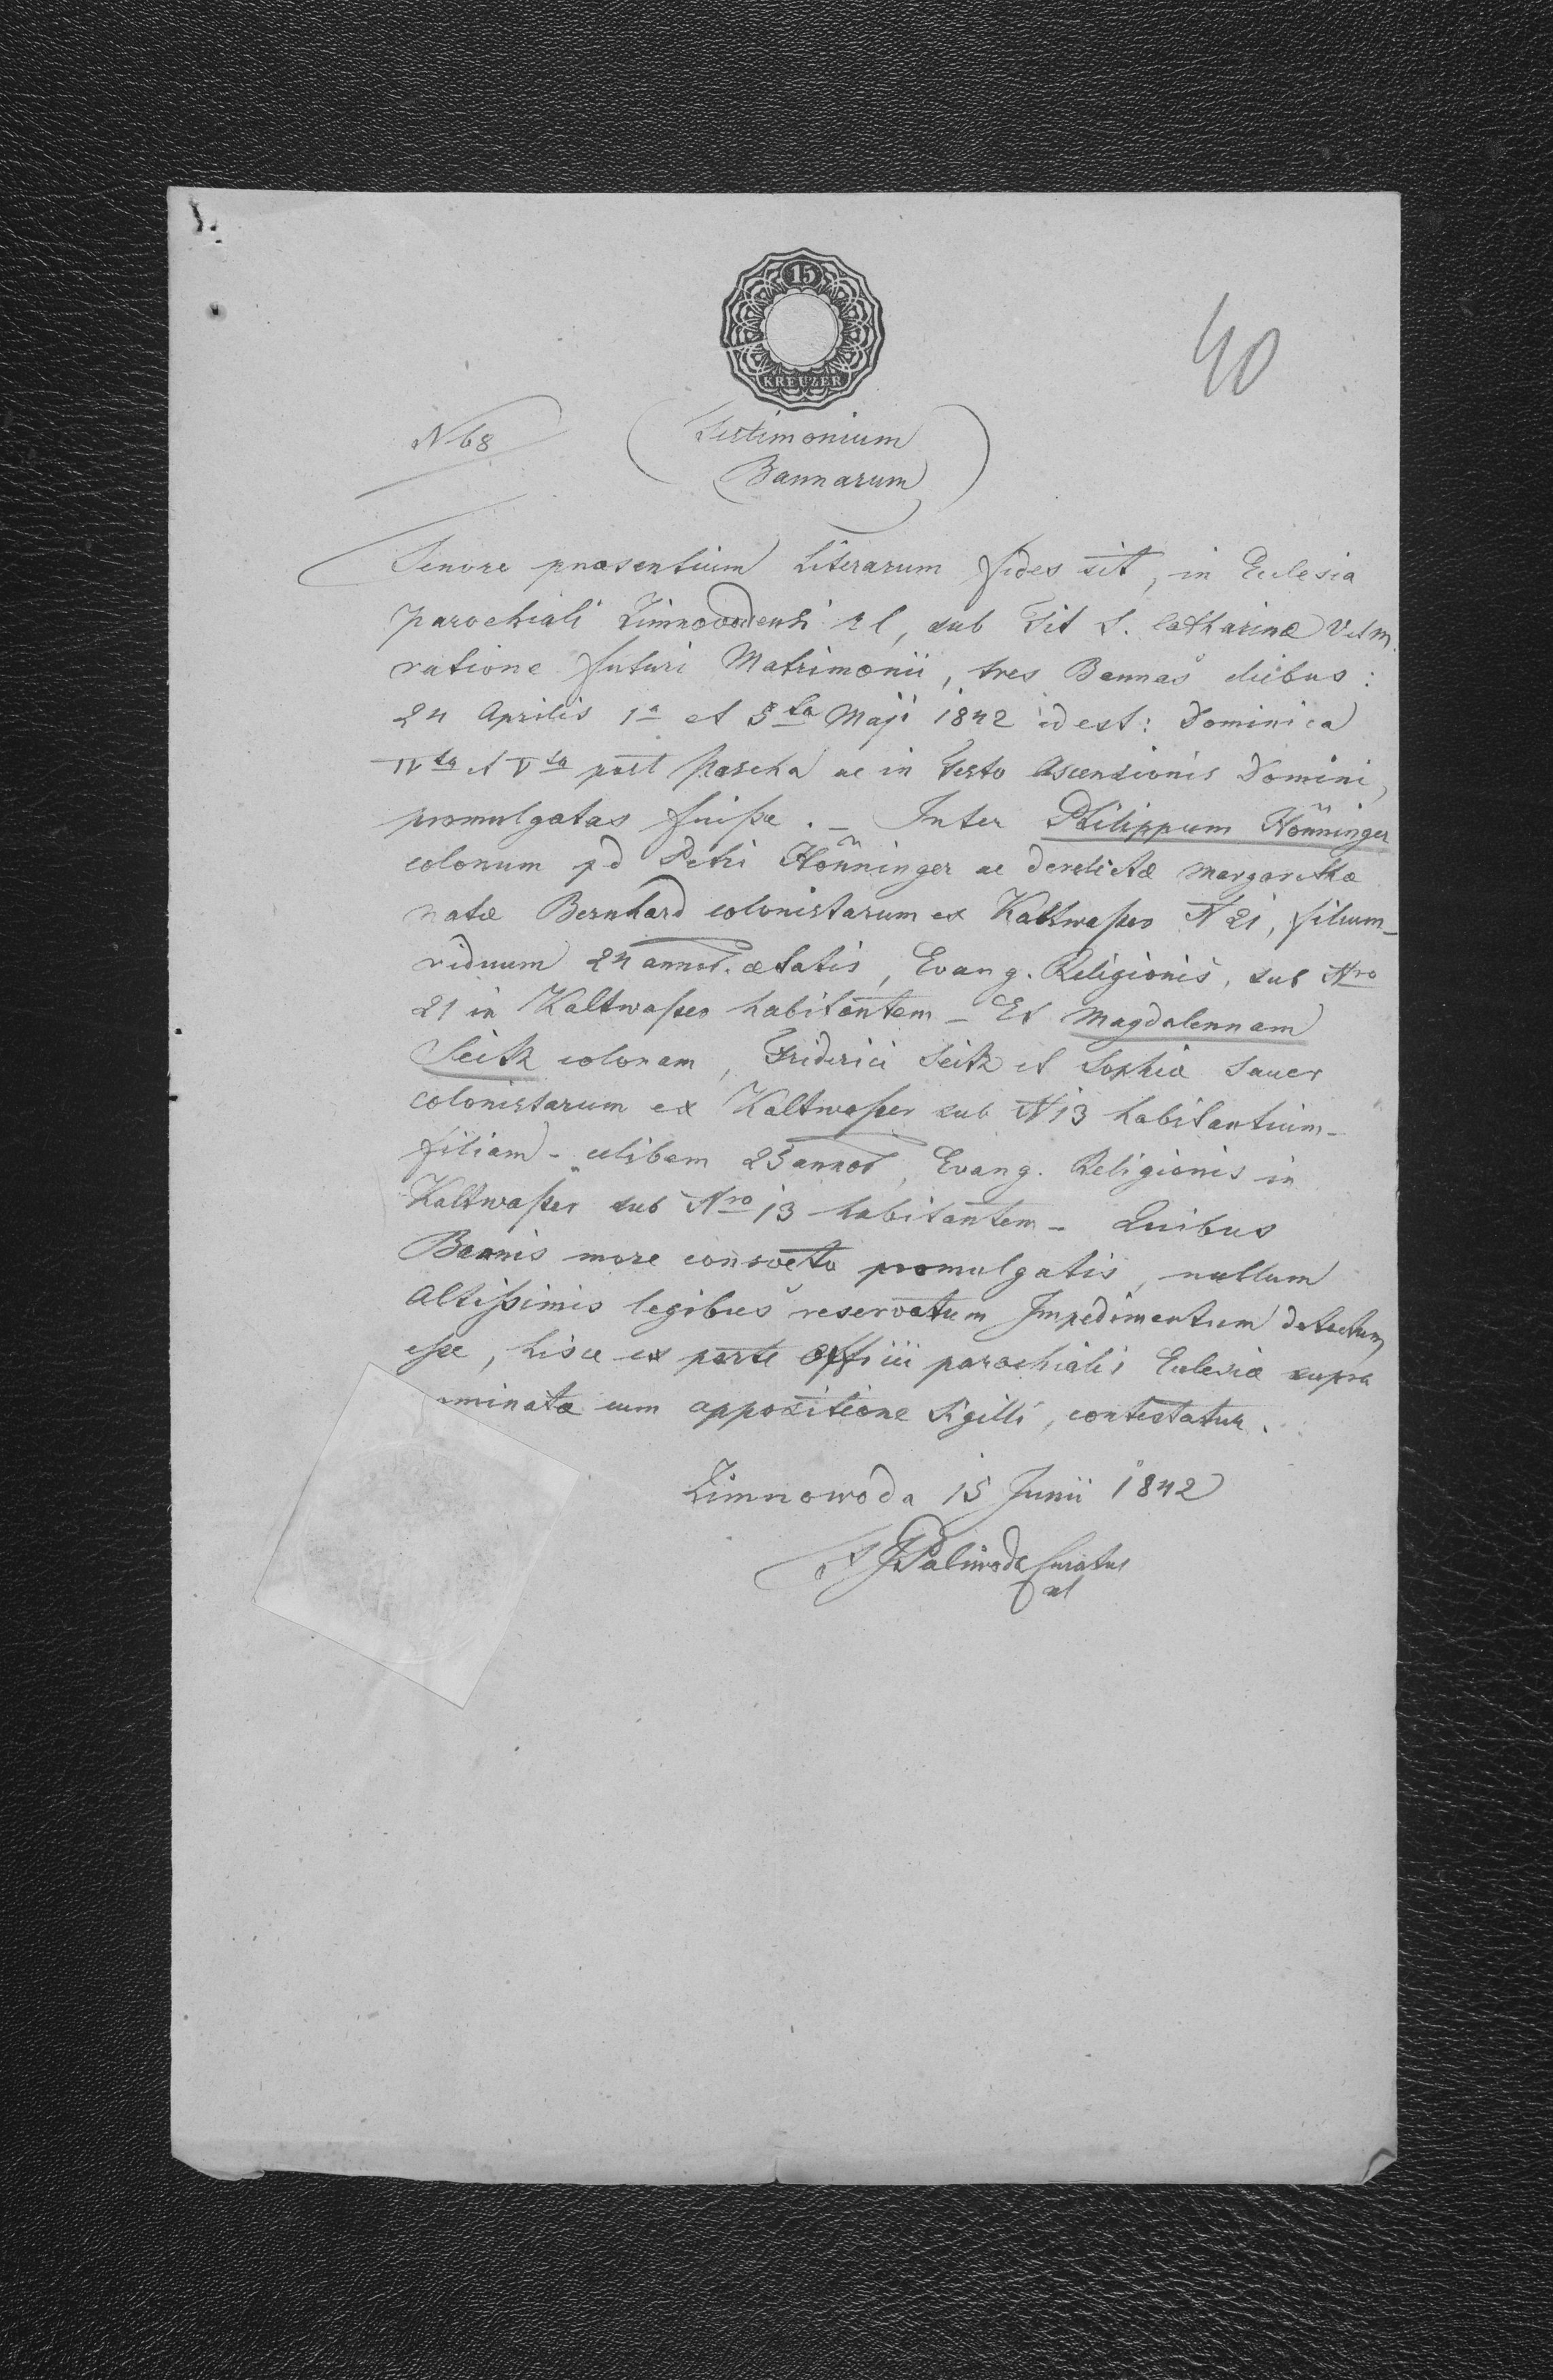 15
KREUZER
40
N 68
Testimonium
Bannarum
Tenore præsentium Literarum fides sit, in Eclesia
parochiali Zimnovodensi r l, sub Tit S. Catharinæ V et M.
ratione futuri Matrimonii, tres Bannas diebus:
24 Aprilis 1ª et 5ta Maji 1842 id est: Dominica
IVta et Vta post Pascha ac in Festo Ascensionis Domini,
promulgatas fuiße. – Inter Philippum Hönninger
colonum pd Petri Hönninger ac derelictæ Margarethæ
natæ Bernhard colonistarum ex Kaltwaßer N 21, filium –
viduum 24 annor. ætatis, Evang. Religionis, sub Nro
21 in Kaltwaßer habitantem – Et Magdalennam
Seitz colonam, Friderici Seitz et Sophiæ Sauer
colonistarum ex Kaltwaßer sub N 13 habitantium –
filiam – celibem 25 annor, Evang. Religionis in
Kaltwaßer sub Nro 13 habitantem – Quibus
Bannis more consveto promulgatis, nullum
altißimis legibus reservatum Impedimentum detectum
eße, hisce ex parte Officii parochialis Eclesiæ supra
minatæ cum appositione Sigilli, contestatur.
Zimnowoda 15 Junii 1842
J Paliwoda Curatus
rl